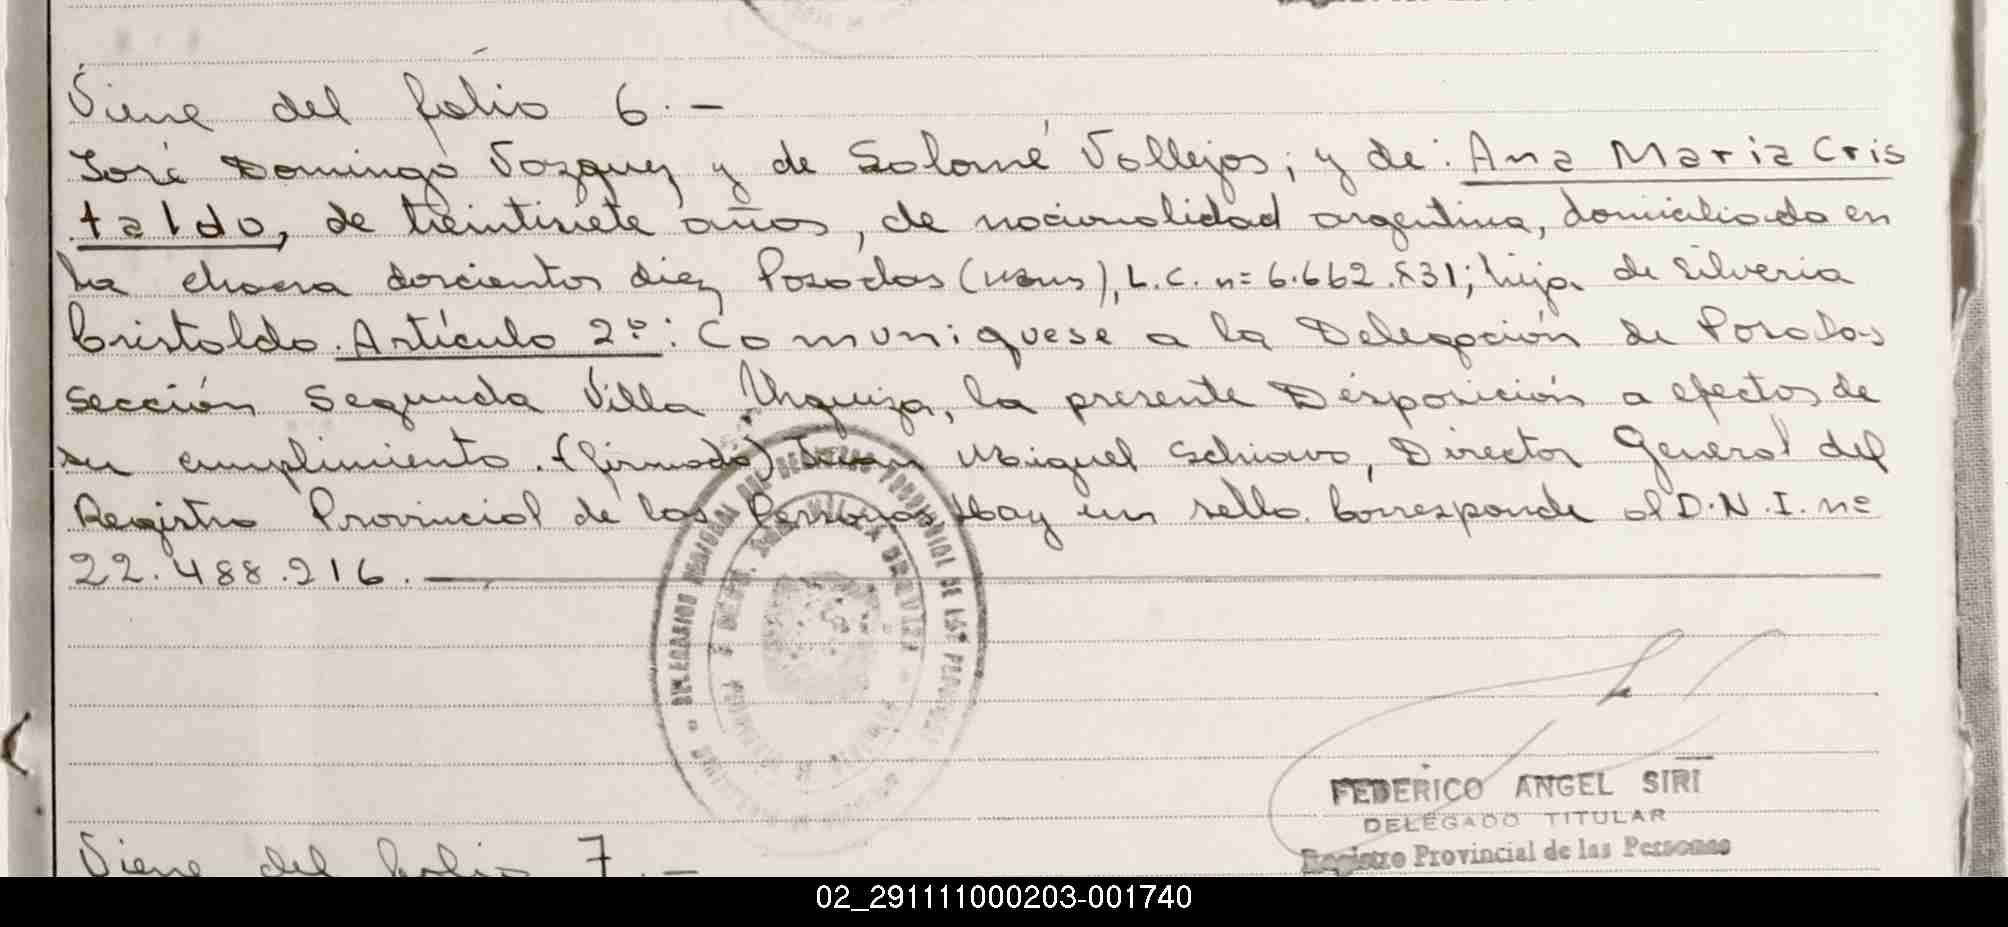 Viene del folio 6.-
José Domingo Vazquez y de Salomé Vallejos; y de: Ana Maria Cris
taldo, de treintisiete años, de nacionalidad argentina, domiciliada en
la chacra doscientos diez Posadas (Mnes), L.C. n= 6.662.831; hija de Silveria
Cristaldo. Artículo 2º: Comuniquese a la Delegación de Posadas
Sección Segunda Villa Urquiza, la presente Disposición a efectos de
su cumplimiento. (firmado) Juan Miguel Schiavo, Director General del
Registro Provincial de las Personas Hay un sello. Corresponde al D.N.I. nº
22.488.216.
FEDERICO ANGEL SIRI
DELEGADO TITULAR
Registro Provincial de las Personas
Viene del folio 7.-
02_291111000203-001740